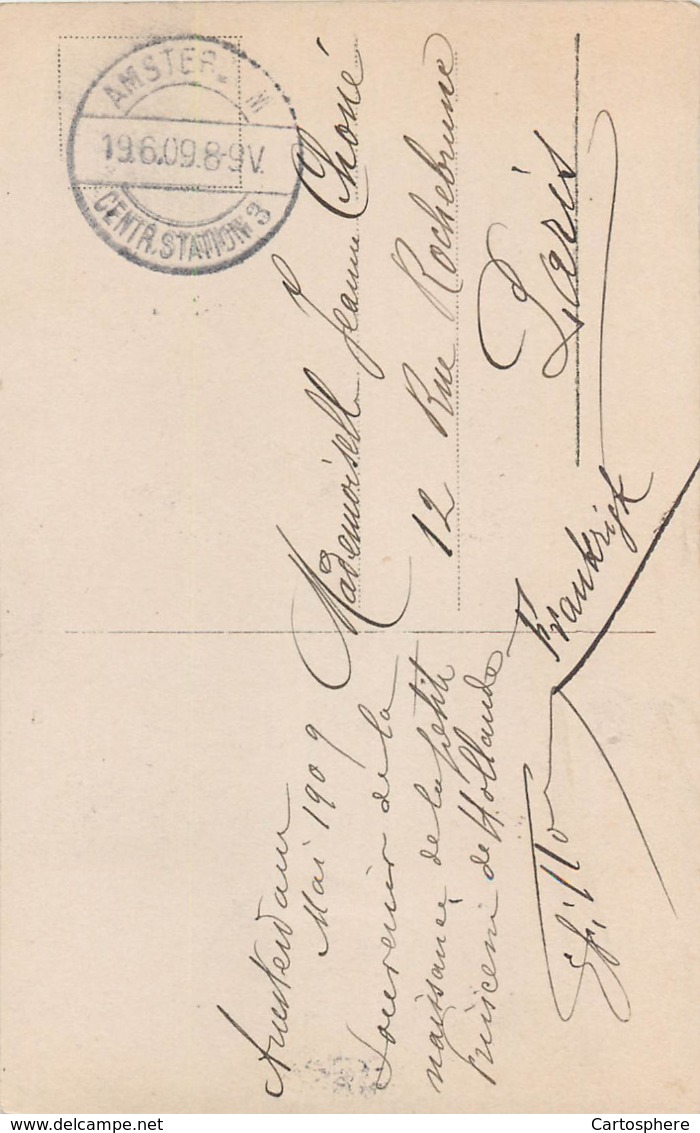 AMSTERDAM
19.6.09.8-9V.
CENTR. STATION 3
Amsterdam
Mai 1909
Souvenir de la
naissance de la petite
princesse de Hollande
Mademoiselle Jeanne Choné
12 Rue Rochebrune
Paris
Frankrijk
delcampe.net
Cartosphere